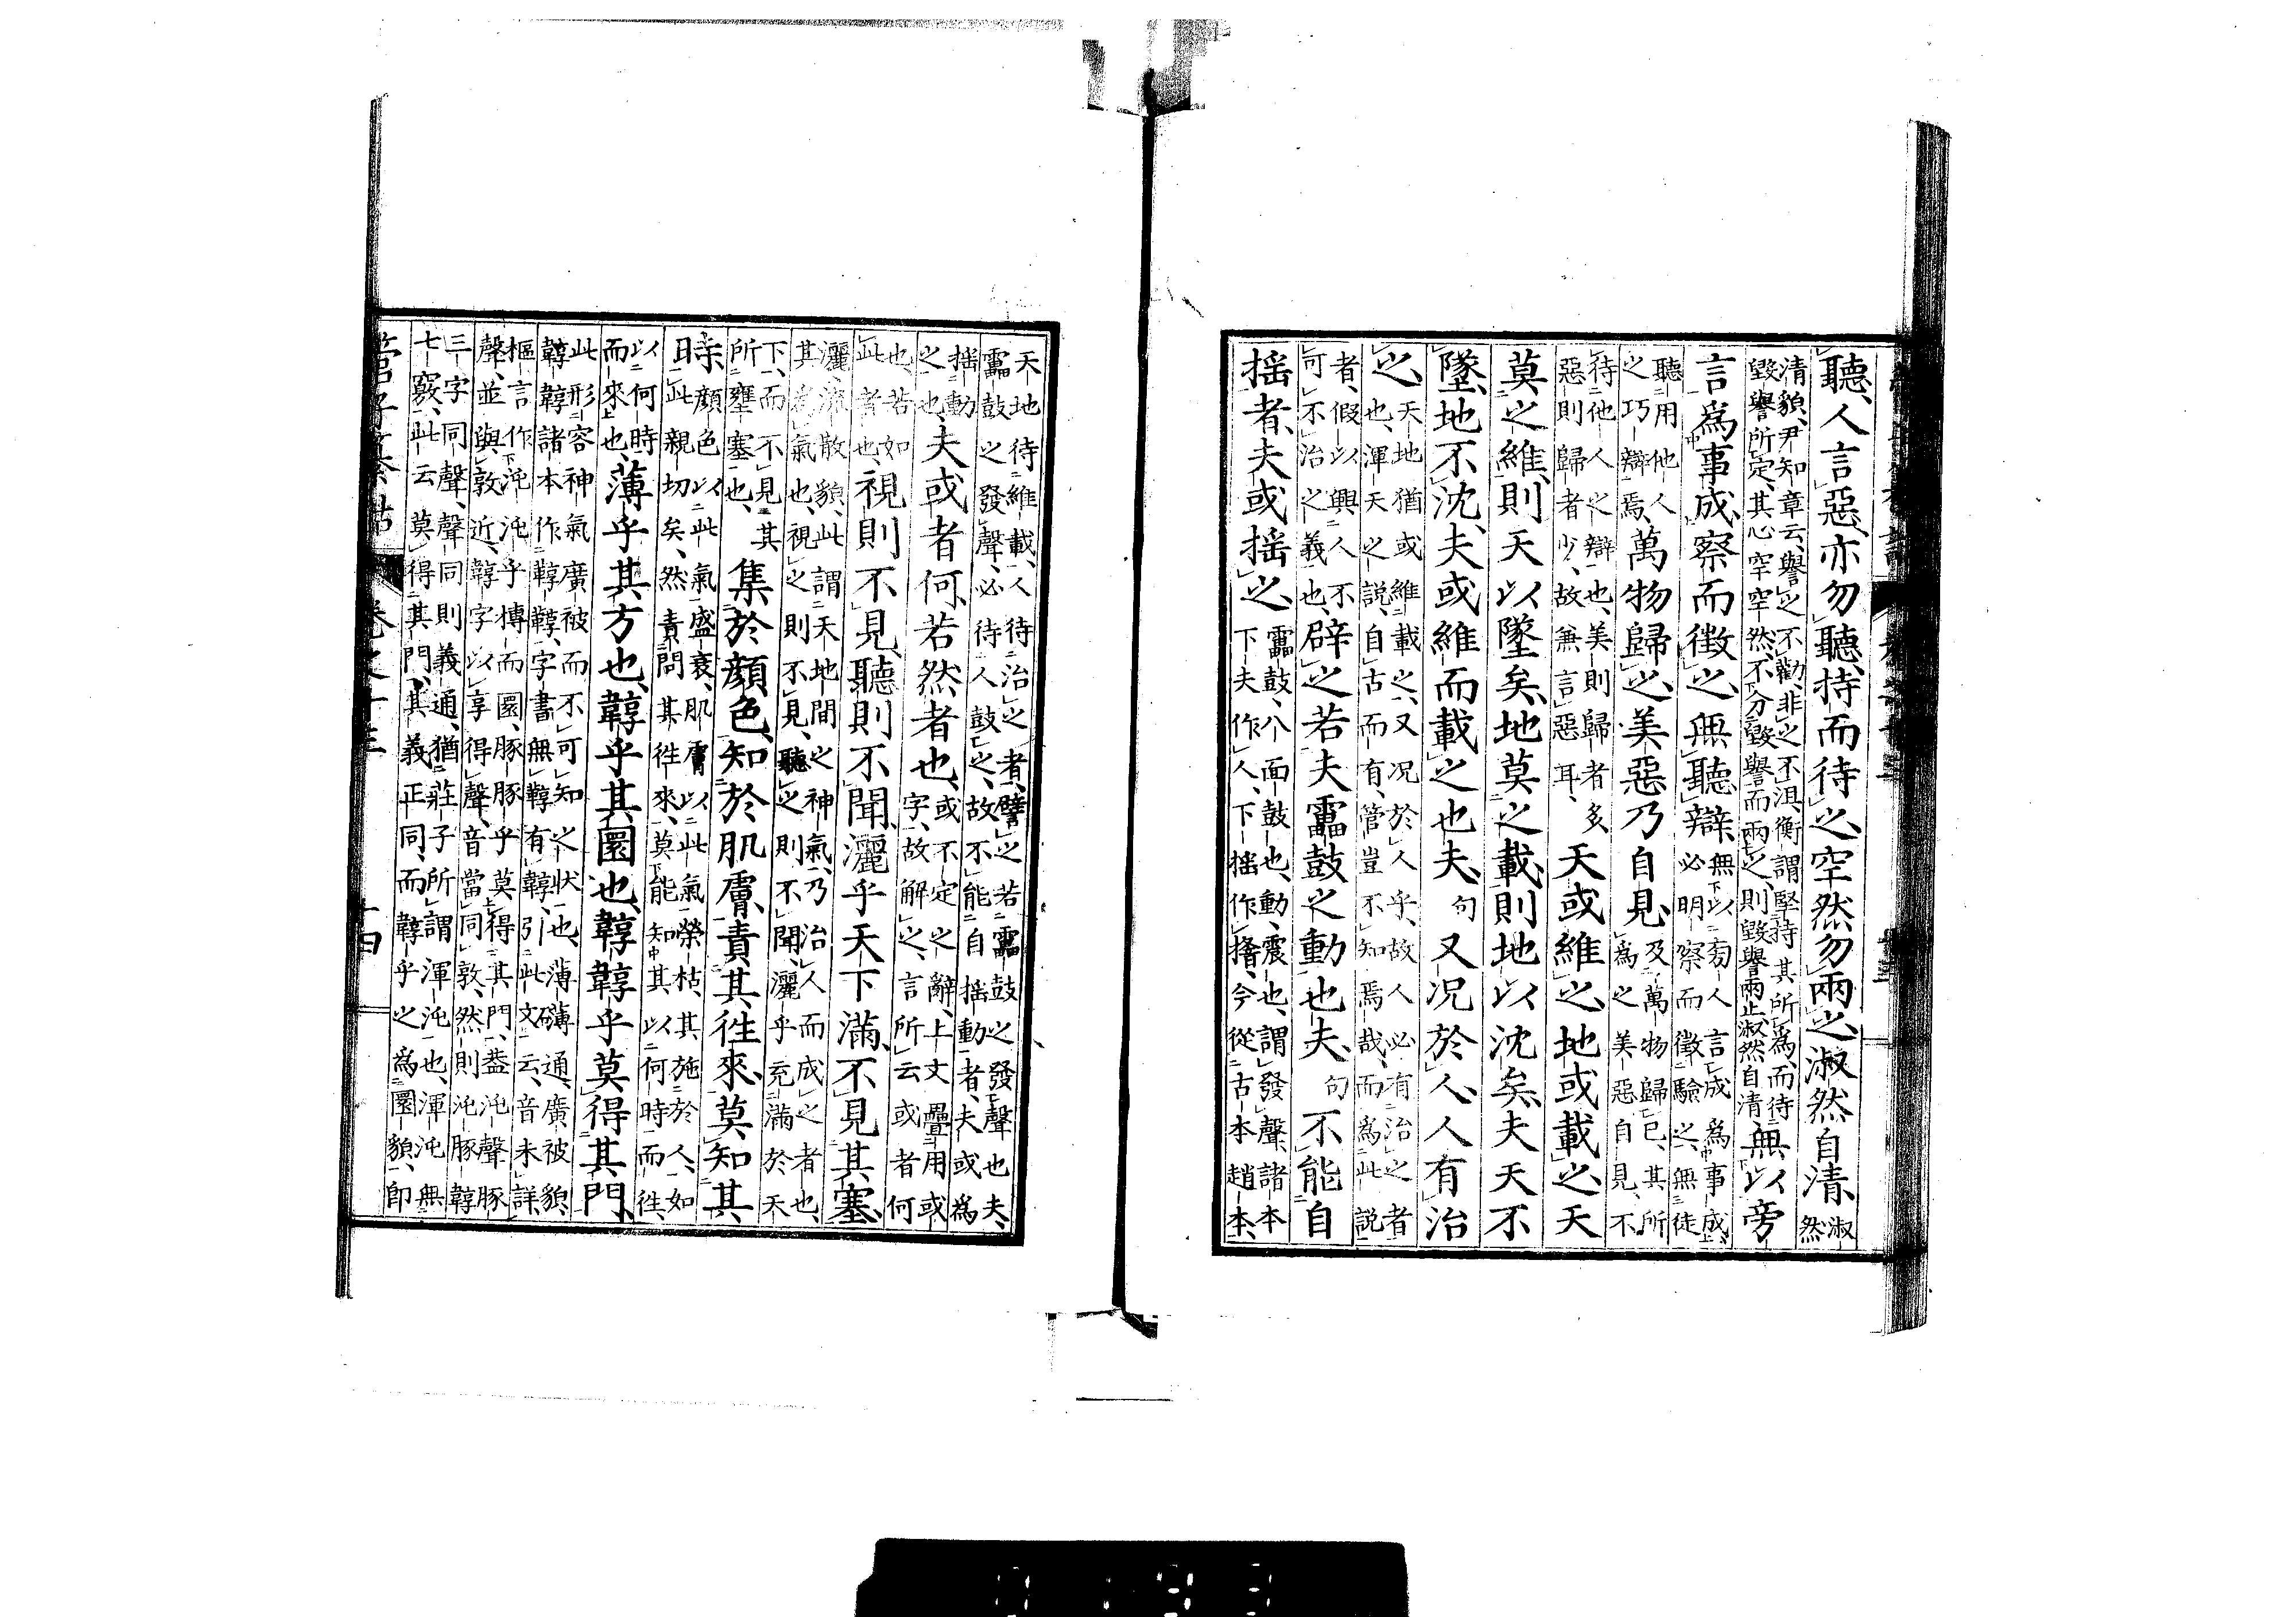 聽、人言惡、亦勿聽、持而待之、空然勿兩之、淑然自清、淑然
清貌、尹知章云、譽之不勸、非之不沮、衡謂堅持其所爲、而待
毀譽所定、其心空空然、不分毀譽而兩之、則毀譽兩止、淑然自清、無以旁
言爲事成、察而徵之、無聽辯、無以旁人言成爲事成、必明察而徵驗之、無徒
聽用他人之巧辯焉、萬物歸之、美惡乃自見、及萬物歸己、其所爲之美惡自見、不
待他人之辯也、美則歸者多、惡則歸者少、故兼言惡耳、天或維之、地或載之、天
莫之維、則天以墜矣、地莫之載、則地以沈矣、夫天不
墜、地不沈、夫或維而載之也夫、句又況於人、人有治
之、天地猶或維載之、又況於人乎、故人必有治之者也、渾天之說、自古而有、管豈不知焉哉、而爲此說
者、假以興人不可不治之義也、辟之若夫靁鼓之動也夫、句不能自
搖者、夫或搖之、靁鼓、八面鼓也、動、震也、謂發聲、諸本下夫作人、下搖作揺、今從古本趙本、
天地待維載、人待治之者、譬之若靁鼓之發聲也夫、
靁鼓之發聲、必待人鼓之、故不能自搖動者、夫或爲
搖動之也、夫或者何、若然者也、或不定之辭、上文疊用或字、故解之、言所云或者何
也、若如此者也、視則不見、聽則不聞、灑乎天下滿、不見其塞、
灑、流散貌、此謂天地間之神氣、乃治人而成之者也、其爲氣也、視之則不見、聽之則不聞、灑乎充滿於天
下、而不見其所壅塞也、集於顏色、知於肌膚、責其往來、莫知其
宗、顏色以此氣盛衰、肌膚以此氣榮枯、其施於人、如此親切矣、然責問其往來、莫能知其以何時而往、
以何時而來也、薄乎其方也、韕乎其圜也、韕韕乎莫得其門、
此形容神氣廣被而不可知之狀也、薄礴通、廣被貌、韕韕諸本作韕韕、字書無韕有韕、引此文云、音未詳、
樞言作沌沌乎摶而圜、豚豚乎莫得其門、蓋沌聲豚聲、並與敦近、韕字以享得聲、音當同敦、然則沌豚韕
三字同聲、聲同則義通、猶莊子所謂渾沌也、渾沌無七竅、此云莫得其門、其義正同、而韕乎之爲圜貌、卽
管子纂詁 卷之十三 十四